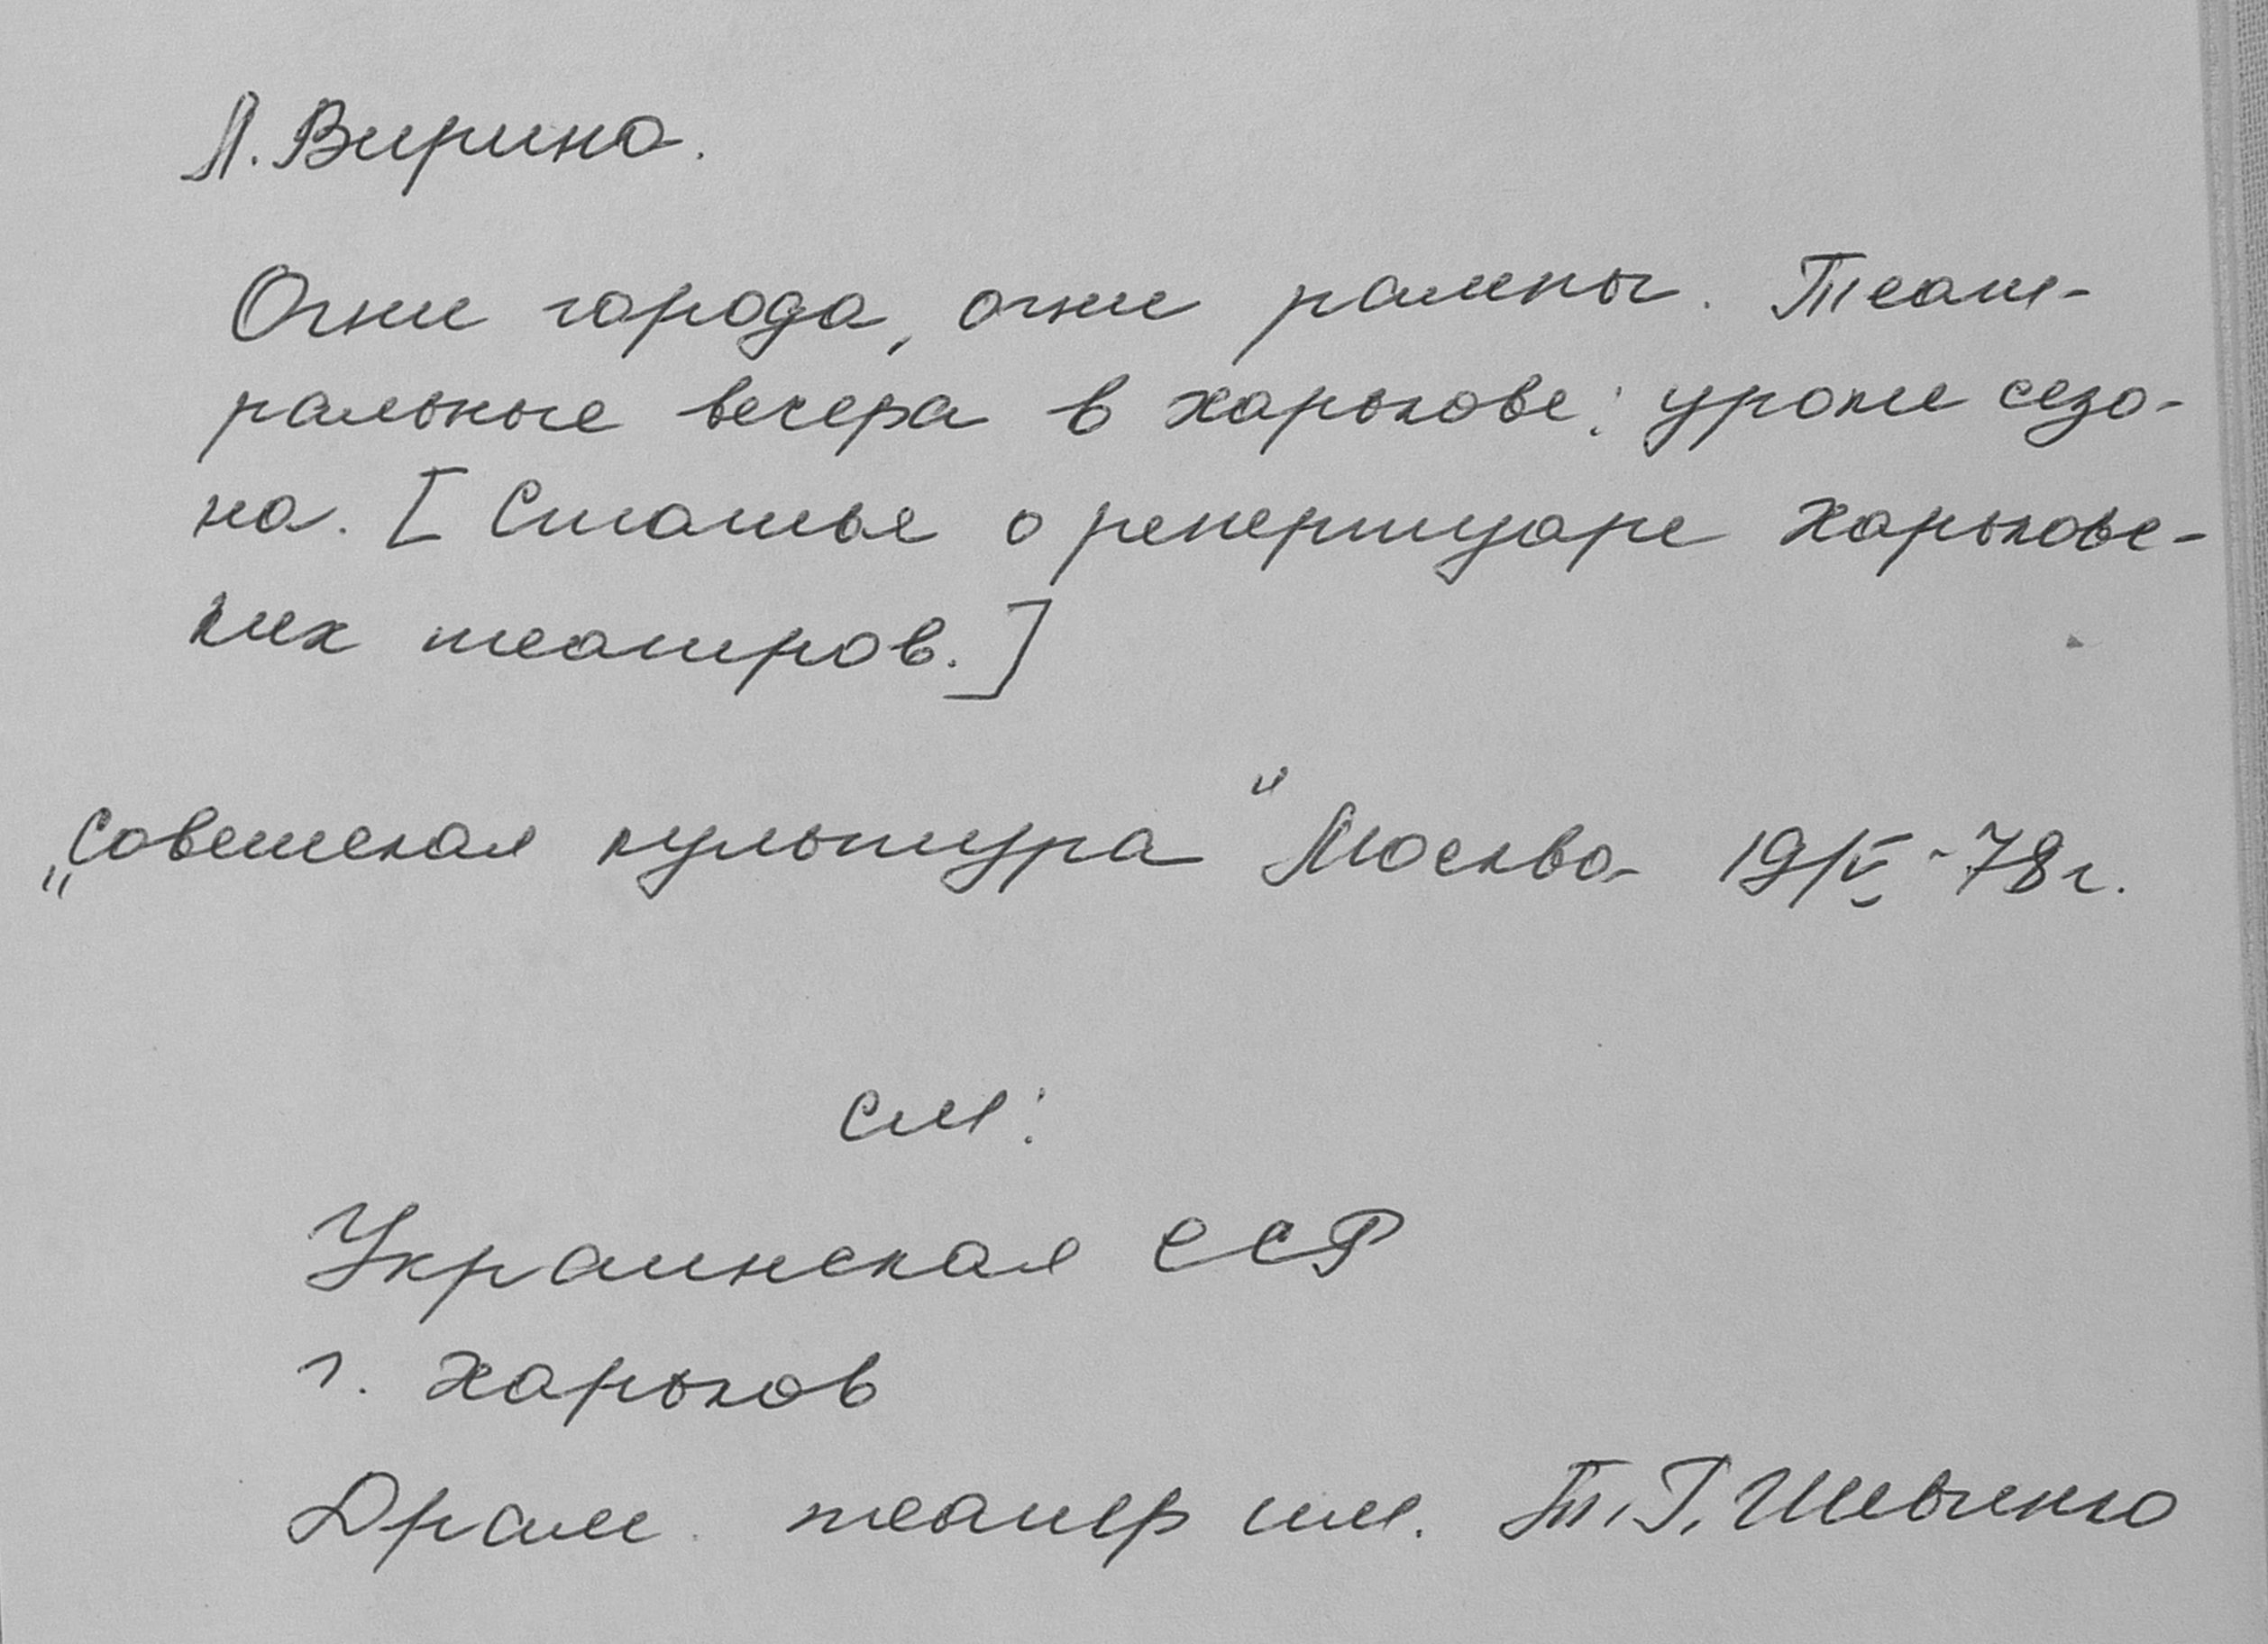 Л. Вирина.
Огни города, огни рампы. Теат-
ральные вечера в Харькове: уроки сезо-
на. [Статья о репертуаре Харьковс-
ких театров.]
„Советская культура" Москва 19/V-78г.
см:
Украинская ССР
г. Харьков
Драм. театр им. Т.Г. Шевченко